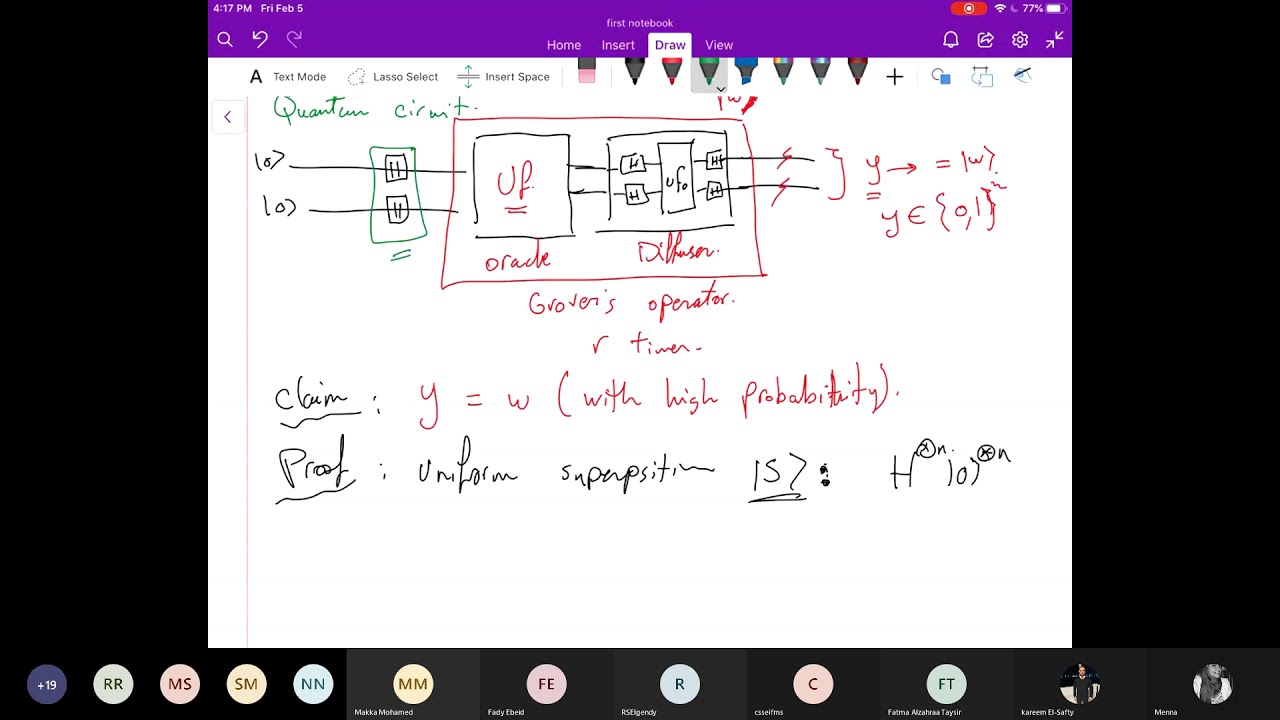 4:17 PM Fri Feb 5
77%
first notebook
Home Insert Draw View
A Text Mode Lasso Select Insert Space
Quantum circuit.
|w⟩
|0⟩ H Uf H Ufo H y → = |w⟩.
|0⟩ H H H y ∈ {0,1}ⁿ
oracle Diffuser.
Grover's operator.
r times.
Claim : y = w (with high probability).
Proof : Uniform superposition |S⟩ : H⊗n |0⟩⊗n
+19 RR MS SM NN MM FE R C FT
Makka Mohamed Fady Ebeid RSElgendy csseifms Fatma Alzahraa Taysir kareem El-Safty Menna